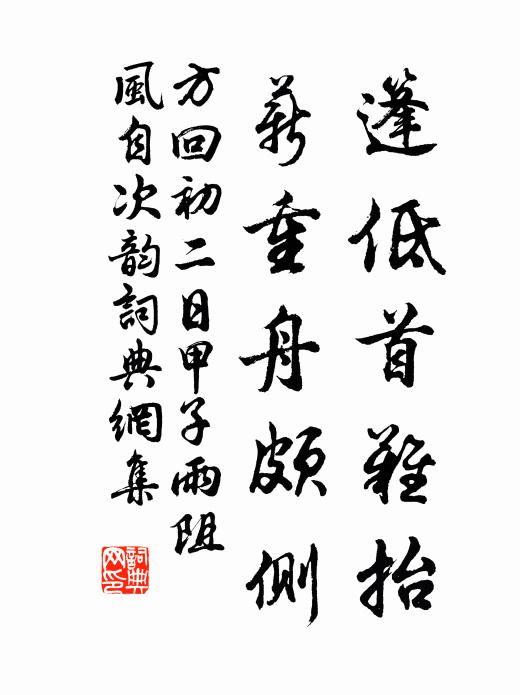 蓬低首難抬
薪重舟頗側
方回初二日甲子雨阻
風自次韵詞典網集
詞典網印